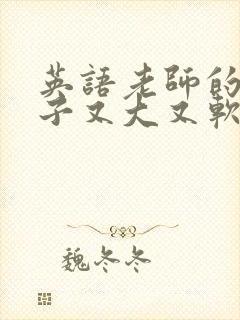 英語老師的
子又大又軟
魏冬冬